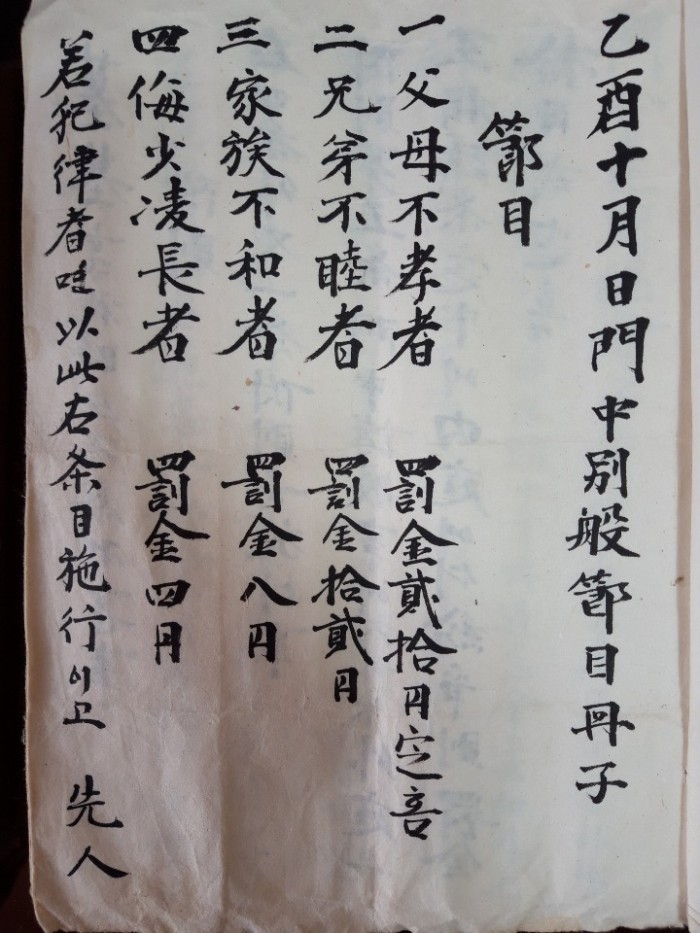 乙酉十月日門中別般節目冊子
節目
一父母不孝者 罰金貳拾円定言
二兄弟不睦者 罰金拾貳円
三家族不和者 罰金八円
四侮少凌長者 罰金四円
若犯律者 以此右条目施行이고 先人